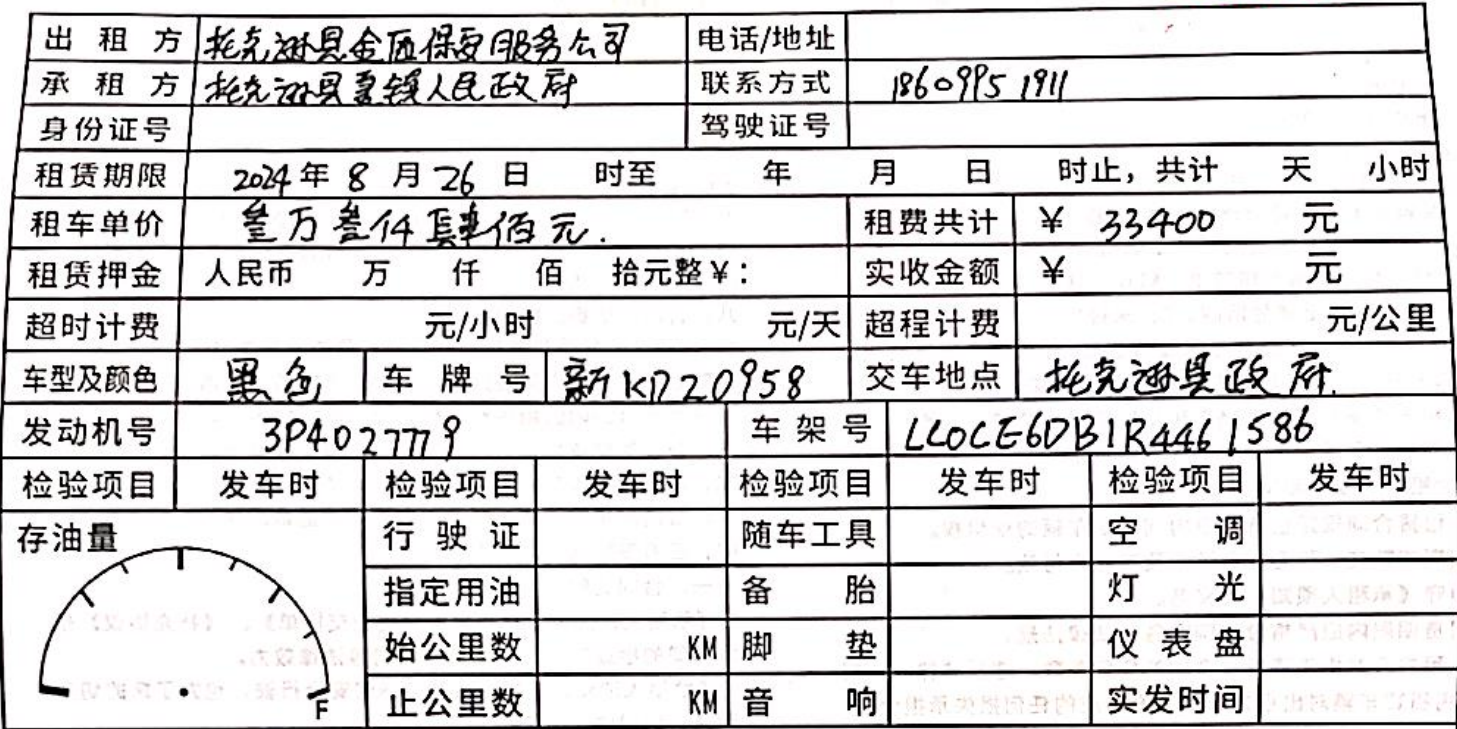 出租方 托克逊县金盾保安服务公司 电话/地址
承租方 托克逊县夏镇人民政府 联系方式 18609951911
身份证号 驾驶证号
租赁期限 2024年8月26日 时至 年 月 日 时止，共计 天 小时
租车单价 叁万叁仟肆佰元. 租费共计 ¥ 33400 元
租赁押金 人民币 万 仟 佰 拾元整¥： 实收金额 ¥ 元
超时计费 元/小时 元/天 超程计费 元/公里
车型及颜色 黑色 车牌号 新KD20958 交车地点 托克逊县政府.
发动机号 3P4027779 车架号 LLOCE6DB1R4461586
检验项目 发车时 检验项目 发车时 检验项目 发车时 检验项目 发车时
存油量 行驶证 随车工具 空调
指定用油 备胎 灯光
始公里数 KM 脚垫 仪表盘
F 止公里数 KM 音响 实发时间